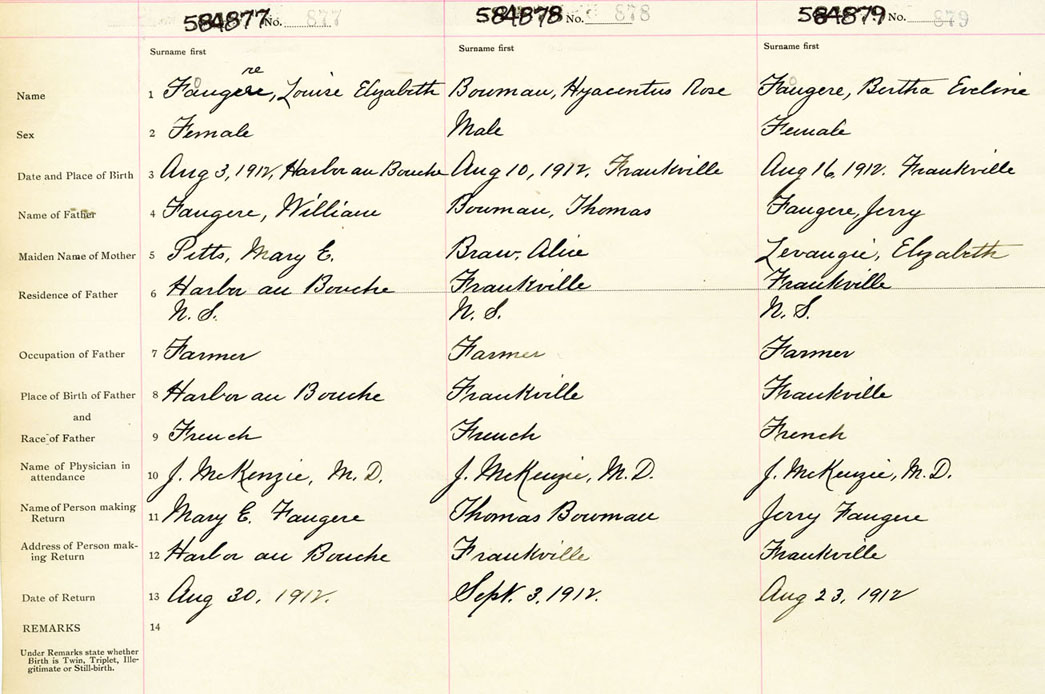 584877 No. 877 584878 No. 878 584879 No. 879
Surname first Surname first Surname first
re
Name 1 Faugere, Louise Elizabeth Bowman, Hyacentus Rose Faugere, Bertha Eveline
Sex 2 Female Male Female
Date and Place of Birth 3 Aug 3, 1912, Harbor au Bouche Aug 10, 1912. Frankville Aug 16, 1912. Frankville
Name of Father 4 Faugere, William Bowman, Thomas Faugere, Jerry
Maiden Name of Mother 5 Pitts, Mary E. Braw, Alice Levangie, Elizabeth
Residence of Father 6 Harbor au Bouche Frankville Frankville
N. S. N. S. N. S.
Occupation of Father 7 Farmer Farmer Farmer
Place of Birth of Father 8 Harbor au Bouche Frankville Frankville
and
Race of Father 9 French French French
Name of Physician in
attendance 10 J. McKenzie, M. D. J. McKenzie, M. D. J. McKenzie, M. D.
Name of Person making
Return 11 Mary E. Faugere Thomas Bowman Jerry Faugere
Address of Person mak-
ing Return 12 Harbor au Bouche Frankville Frankville
Date of Return 13 Aug 30, 1912. Sept. 3, 1912. Aug 23, 1912
REMARKS 14
Under Remarks state whether
Birth is Twin, Triplet, Ille-
gitimate or Still-birth.